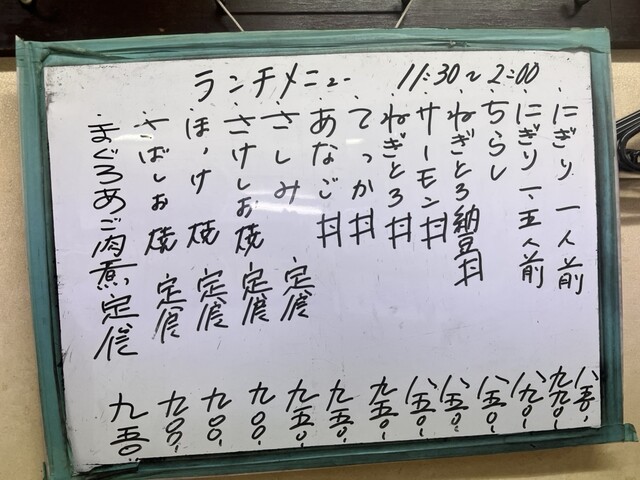 ランチメニュー 11:30~2:00
・にぎり 一人前 八五〇、
・にぎり 一、五人前 九九〇-
・ちらし 八九〇-
・ねぎとろ納豆丼 八五〇-
・サーモン丼 八五〇-
・ねぎとろ丼 八五〇-
・てっか丼 九五〇-
・あなご丼 九五〇-
・さしみ定食 九五〇-
・さけしお焼定食 九〇〇-
・ほっけ焼定食 九〇〇-
・さばしお焼定食 九〇〇-
・まぐろあご肉煮定食 九五〇、